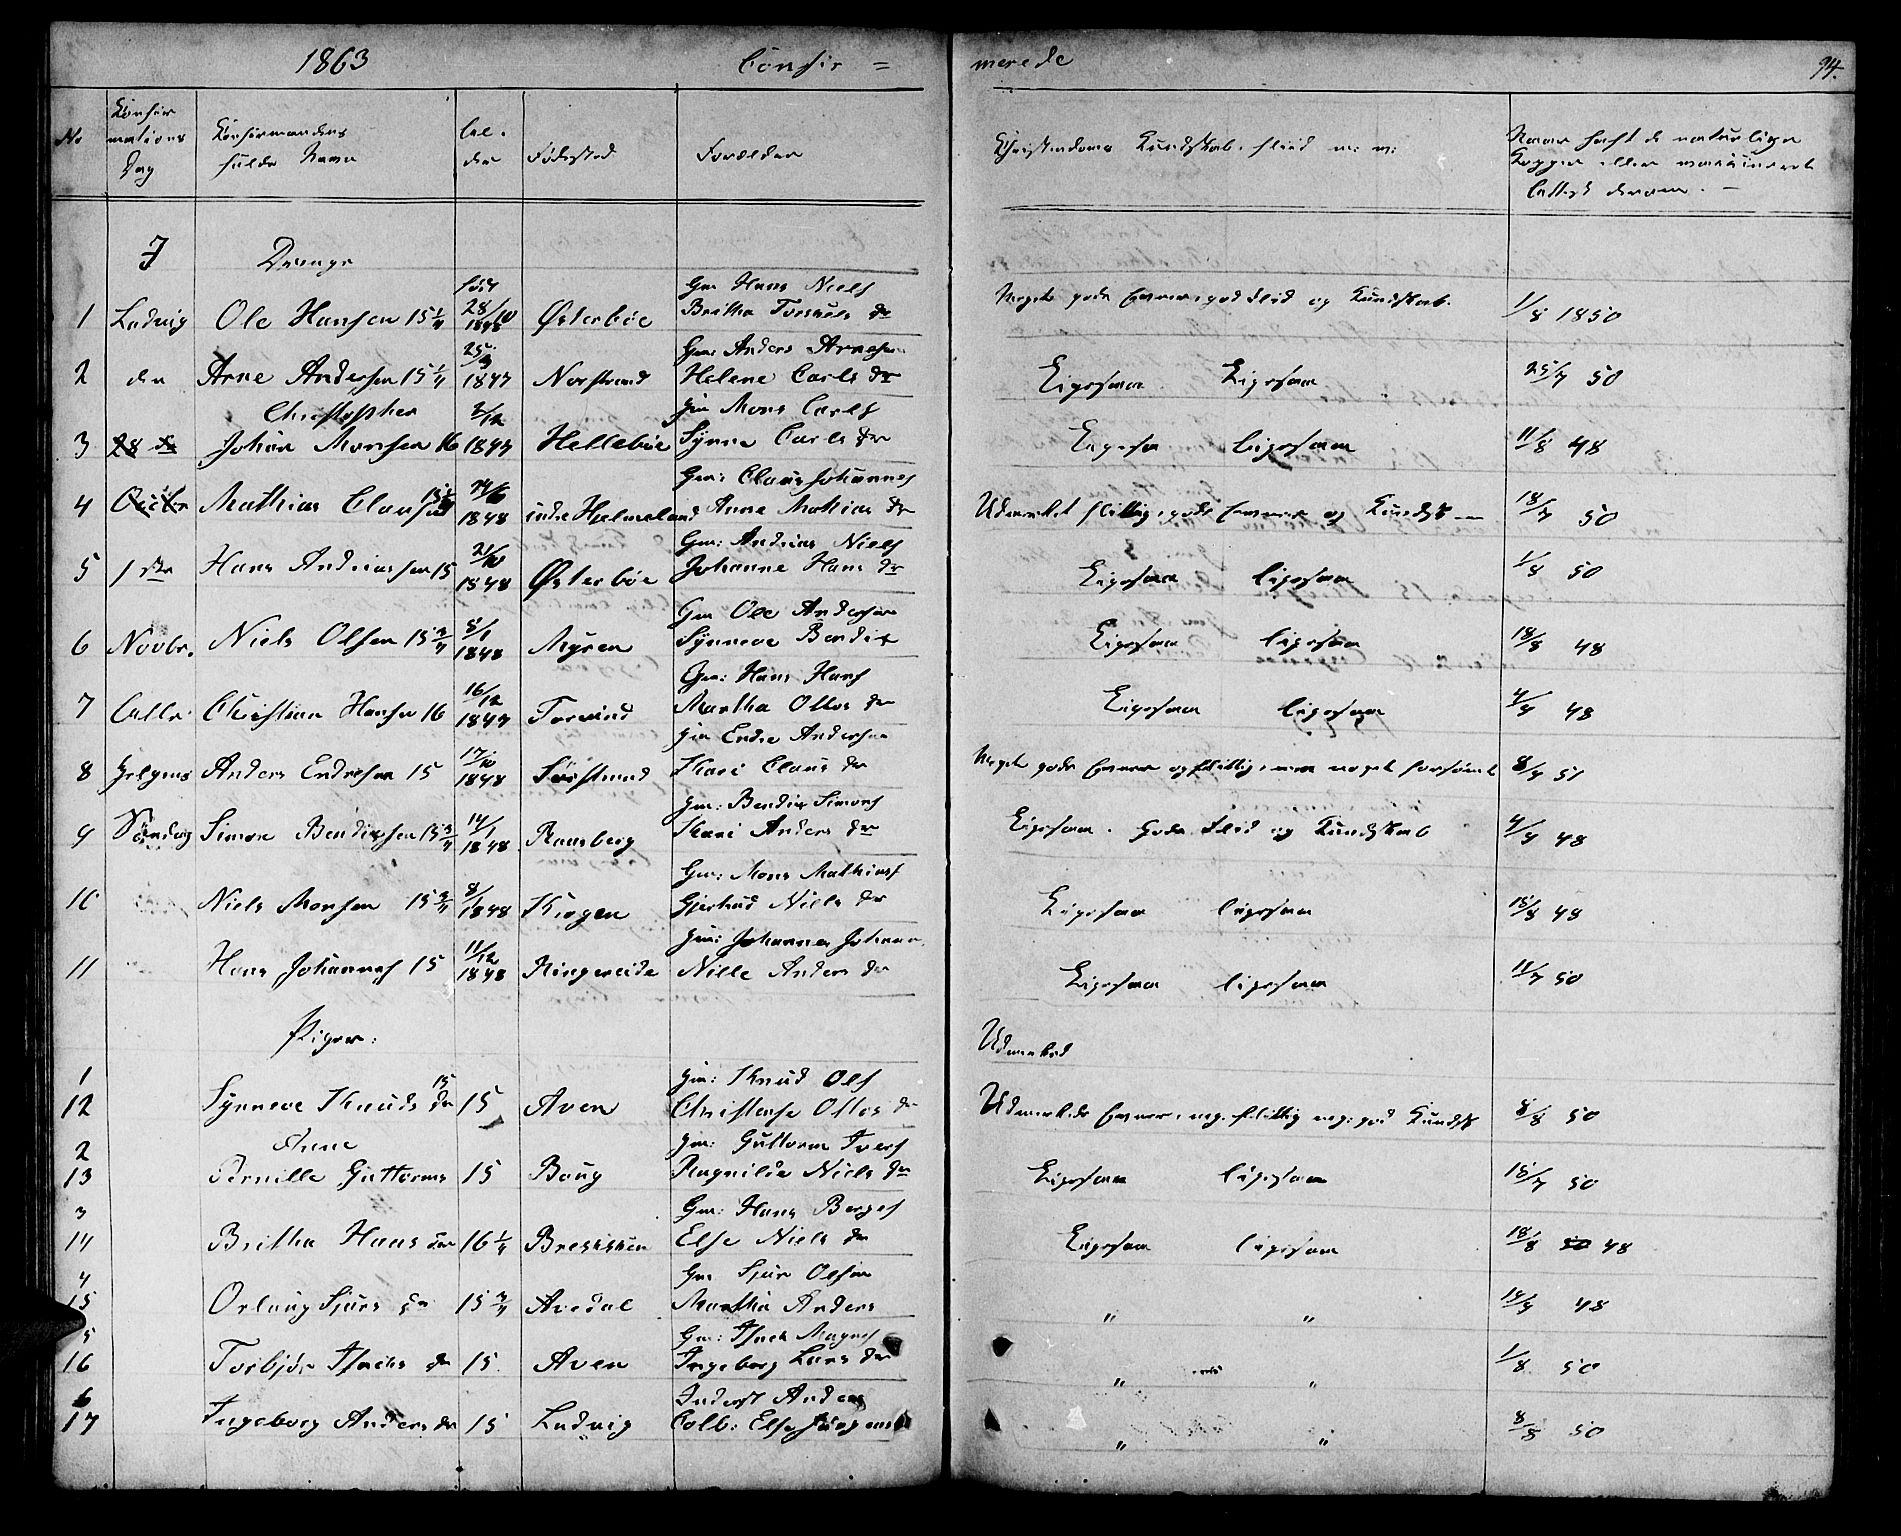 1863 Confir =
merede 94.
No
Konfir
mations
Dag
Konfirmandens
fulde Navn
Al-
der
Fødested
Forældre
Christendoms Kundskab. Flid m: m:
Naar haft de naturlige
Kopper eller vaccineret
Attest derom. —
I Drenge
1 Ladvig Ole Hansen 15 1/4 født 28/10 1848 Østerbøe Gm Hans Niels Britha dr Meget gode Evner, god Flid og Kundskab. 1/8 1850
2 den Arne Andersen 15 1/4 1847 Norstrand Gm: Anders Arnesen Helene Carls dr Ligesaa Ligesaa 25/7 50
3 28 de Christopher Johan Monsen 16 2/12 1847 Hellebøe Gm Mons Carls Synne Carls dr Ligesaa ligesaa 11/8 48
4 Octbr Mathias Clausen 1848 indre Hjelmeland Gm: Claus Johannes Anne Mathias dr Udmærket flittig, gode Evner og Kundsk — 18/7 50
5 1ste Hans Andreassen 15 21/10 1848 Østerbøe Gm: Andreas Niels Johanne Hans dr Ligesaa ligesaa 1/8 50
6 Novbr. Niels Olsen 15 3/4 8/1 1848 Myren Gm Ole Andersen Synneve Bendix Ligesaa ligesaa 18/8 48
7 Alle Christian Hansen 16 16/12 1847 Torvund Gm: Hans Hans Martha Ottos dr Ligesaa ligesaa 4/4 48
8 Helgens Anders Endresen 15 17/10 1848 Sørstrand Gm Endre Andersen Kari Claus dr Meget gode Evner og flittig, men noget forsømt 8/7 51
9 Søndag Simon Bendixsen 15 3/4 14/1 1848 Raasberg Gm: Bendix Simons Kari Anders dr Ligesaa. gode Flid og Kundskab 4/4 48
10 Niels Monsen 15 3/4 8/1 1848 Kragen Gm: Mons Mathias Gjertrud Niels dr Ligesaa ligesaa 18/8 48
11 Hans Johannes 15 11/12 1848 Ringereide Gm: Johannes Johann. Nille Anders dr Ligesaa ligesaa 11/7 50
Piger:
Udmærked
1
12 Synneve Knuds dr 15 Aven Gm: Knud Ols Christense Ottos dr Udmærkede Evner, meg. flittig meg: god Kundsk 8/8 50
2
13 Anne Pernille Guttorms 15 Boug Gm: Guttorm Ivers Ragnilde Niels dr Ligesaa ligesaa 18/7 50
3
14 Britha Hans dr 16 1/4 Brekskien Gm: Hans Berges Else Niels dr Ligesaa ligesaa 18/8 50 48
4
15 Orlaug Sjurs dr 15 3/4 Avedal Gm Sjur Olsen Martha Anders " " 14/4 48
5
16 Torbjør Isacks dr 15 Aven Gm: Isack Magnes Ingeborg Lars dr " " 1/8 50
6
17 Ingeborg Anders dr 15 Ladvig Inderst Anders Colb: Else Jørgens " " 8/8 50